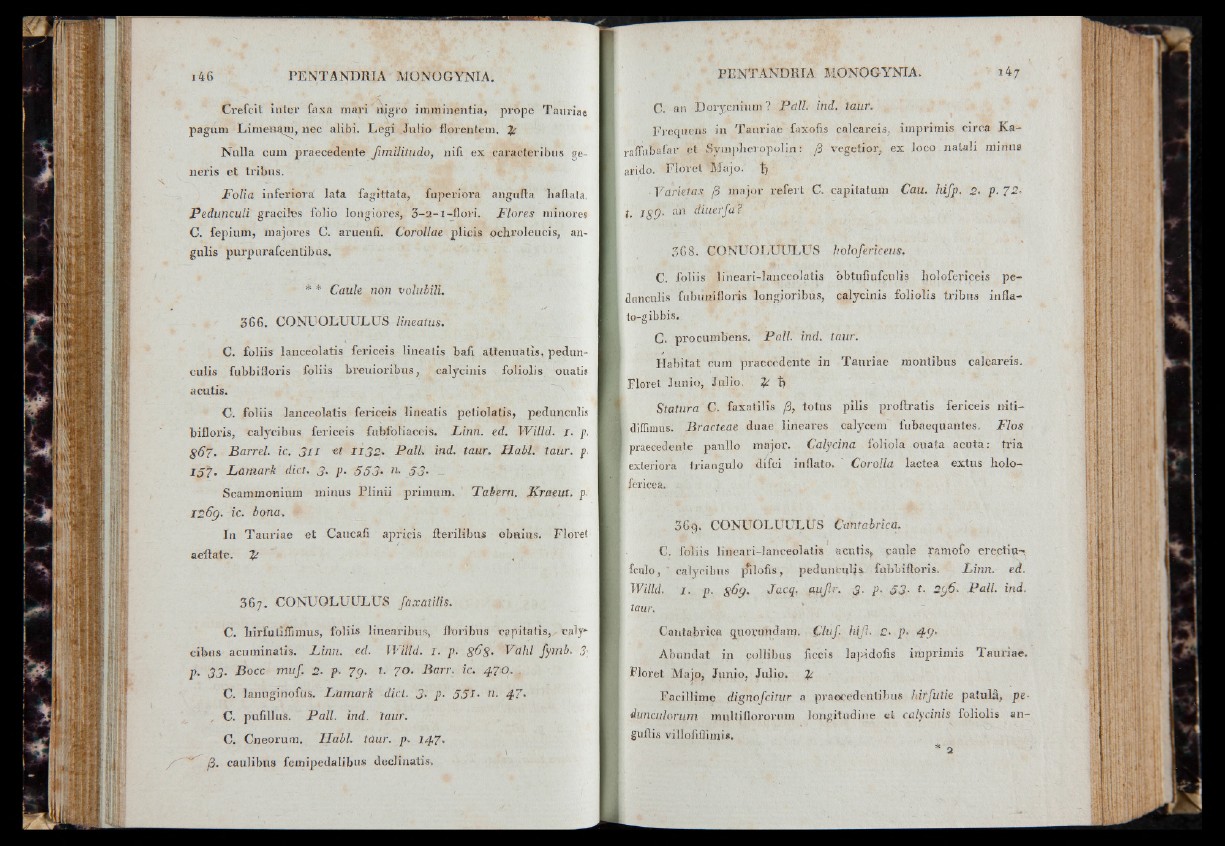 146 PENTANDRIA MONOGYNIA.
Creſcit inter ſaxa mari nigro imminentia, prope Tauriae
pagum Limenam, nec alibi. Legi Julio florentem. ♃
Nulla cum praecedente ſimilitudo, niſi ex caracteribus ge-
neris et tribus.
Folia inferiora lata ſagittata, ſuperiora anguſta haſtata.
Pedunculi graciles folio longiores, 3-2-1-flori. Flores minores
C. ſepium, majores C. aruenſi. Corollae plicis ochroleucis, an-
gulis purpuraſcentibus.
* * Caule non volubili.
366. CONUOLUULUS lineatus.
C. foliis lanceolatis ſericeis lineatis baſi attenuatis, pedun-
culis ſubbifloris foliis breuioribus, calycinis foliolis ouatis
acutis.
C. foliis lanceolatis ſericeis lineatis petiolatis, pedunculis
bifloris, calycibus ſericeis ſubfoliaceis. Linn. ed. Willd. 1. p.
867. Barrel. ic. 311 et 1132. Pall. ind. taur. Habl. taur. p.
157. Lamark dict. 3. p. 553. n. 53.
Scammonium minus Plinii primum. Tabern. Kraeut. p.
1269. ic. bona.
In Tauriae et Caucaſi apricis ſterilibus obuius. Floret
aeſtate. ♃
367. CONUOLUULUS ſaxatilis.
C. hirſutiſſimus, foliis linearibus, floribus capitatis, caly-
cibus acuminatis. Linn. ed. Willd. 1. p. 868. Vahl ſymb. 3.
p. 33. Bocc muſ. 2. p. 79. t. 70. Barr. ic. 470.
C. lanuginoſus. Lamark dict. 3. p. 551. n. 47.
C. puſillus. Pall. ind. taur.
C. Cneorum. Habl. taur. p. 147.
β. caulibus ſemipedalibus declinatis.
PENTANDRIA MONOGYNIA. 147
C. an Dorycnium? Pall. ind. taur.
Frequens in Tauriae ſaxoſis calcareis, imprimis circa Ka-
raſſubaſar et Sympheropolin: β vegetior, ex loco natali minus
arido. Floret Majo. ♄
Varietas β major refert C. capitatum Cau. hiſp. 2. p. 72.
t. 189. an diuerſa?
368. CONUOLUULUS holoſericeus.
C. foliis lineari-lanceolatis obtuſiuſculis holoſericeis pe-
dunculis ſubunifloris longioribus, calycinis foliolis tribus infla-
to-gibbis.
C. procumbens. Pall. ind. taur.
Habitat cum praecedente in Tauriae montibus calcareis.
Floret Junio, Julio. ♃ ♄
Statura C. ſaxatilis β, totus pilis proſtratis ſericeis niti-
diſſimus. Bracteae duae lineares calycem ſubaequantes. Flos
praecedente paullo major. Calycina foliola ouata acuta: tria
exteriora triangulo diſci inflato. Corolla lactea extus holo-
ſericea.
369. CONUOLUULUS Cantabrica.
C. foliis lineari-lanceolatis acutis, caule ramoſo erectiu-
ſculo, calycibus piloſis, pedunculis ſubbifloris. Linn. ed.
Willd. 1. p. 869. Jacq. auſtr. 3. p. 53. t. 296. Pall. ind.
taur.
Cantabrica quorundam. Cluſ. hiſt. 2. p. 49.
Abundat in collibus ſiccis lapidoſis imprimis Tauriae.
Floret Majo, Junio, Julio. ♃
Facillime dignoſcitur a praecedentibus hirſutie patulâ, pe-
dunculorum multiflororum longitudine et calycinis foliolis an-
guſtis villoſiſſimis.
* 2